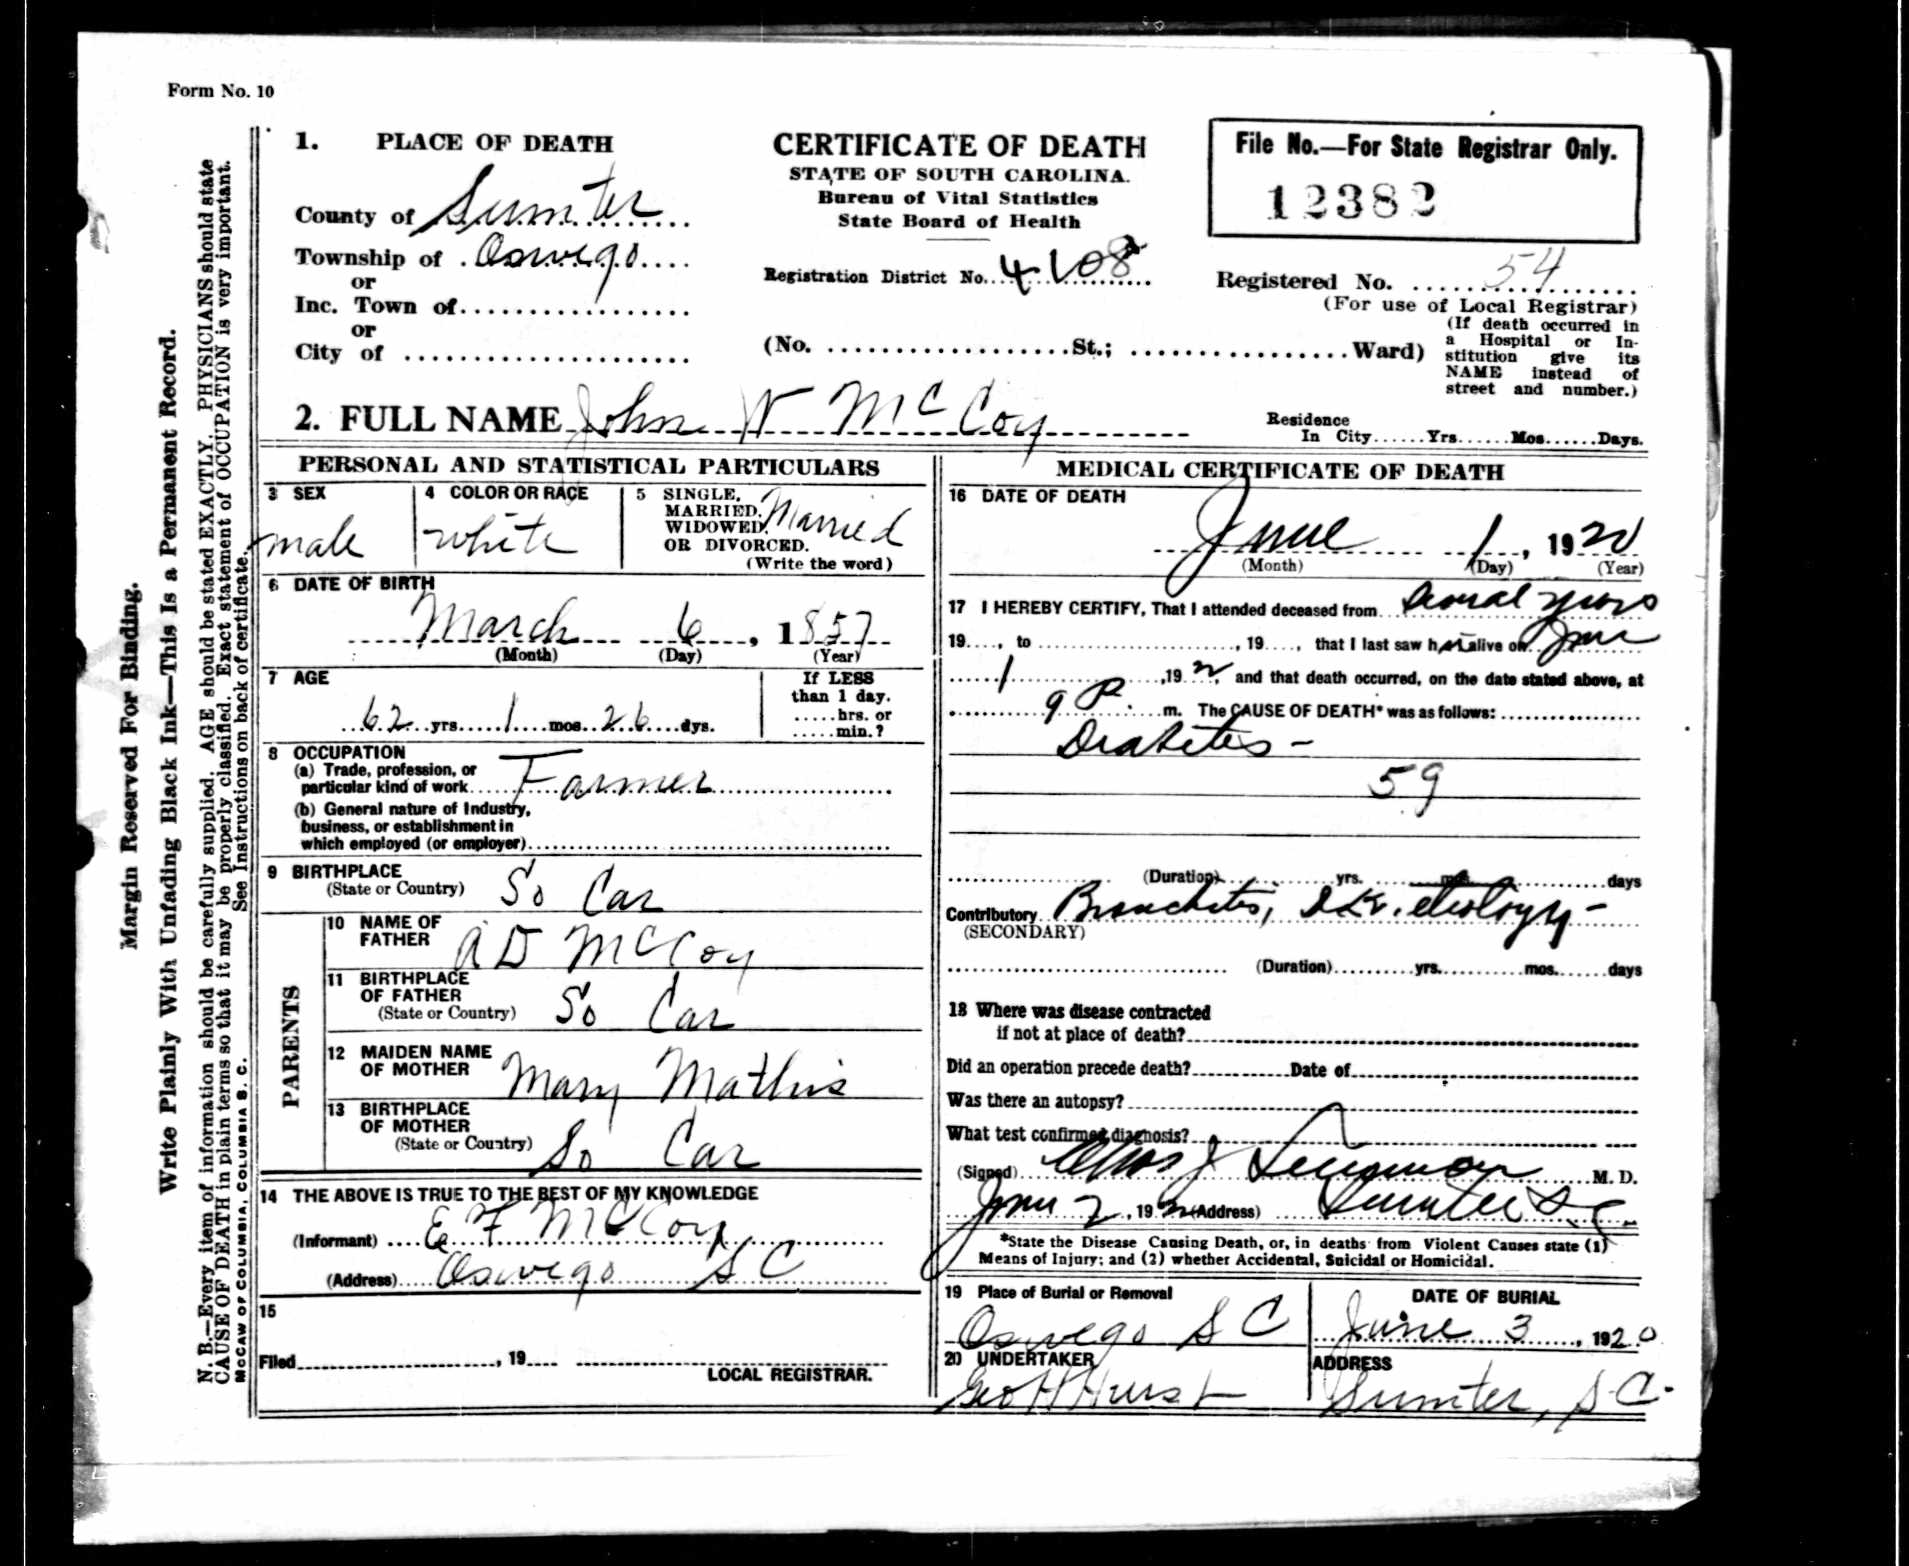 Form No. 10
1. PLACE OF DEATH
County of Sumter
Township of Oswego
or
Inc. Town of
or
City of
CERTIFICATE OF DEATH
STATE OF SOUTH CAROLINA.
Bureau of Vital Statistics
State Board of Health
Registration District No. 4108
File No.—For State Registrar Only.
12382
Registered No. 54
(For use of Local Registrar)
(No. St.; Ward)
(If death occurred in
a Hospital or In-
stitution give its
NAME instead of
street and number.)
2. FULL NAME John W McCoy
Residence
In City Yrs. Mos. Days.
PERSONAL AND STATISTICAL PARTICULARS
3 SEX
male
4 COLOR OR RACE
white
5 SINGLE,
MARRIED,
WIDOWED,
OR DIVORCED.
(Write the word)
Married
6 DATE OF BIRTH
March 6, 1857
(Month) (Day) (Year)
7 AGE
62 yrs. 1 mos. 26 dys.
If LESS
than 1 day.
hrs. or
min.?
8 OCCUPATION
(a) Trade, profession, or
particular kind of work Farmer
(b) General nature of Industry,
business, or establishment in
which employed (or employer)
9 BIRTHPLACE
(State or Country) So Car
PARENTS
10 NAME OF
FATHER A D McCoy
11 BIRTHPLACE
OF FATHER
(State or Country) So Car
12 MAIDEN NAME
OF MOTHER Mary Mathis
13 BIRTHPLACE
OF MOTHER
(State or Country) So Car
14 THE ABOVE IS TRUE TO THE BEST OF MY KNOWLEDGE
(Informant) E F McCoy
(Address) Oswego S C
15
Filed , 19
LOCAL REGISTRAR.
MEDICAL CERTIFICATE OF DEATH
16 DATE OF DEATH
June 1, 1920
(Month) (Day) (Year)
17 I HEREBY CERTIFY, That I attended deceased from several years
19 , to , 19 , that I last saw him alive on June
1 , 192 , and that death occurred, on the date stated above, at
9 P. m. The CAUSE OF DEATH* was as follows:
Diabetes -
59
(Duration) yrs. mos. days
Contributory Bronchitis, etiology -
(SECONDARY)
(Duration) yrs. mos. days
18 Where was disease contracted
if not at place of death?
Did an operation precede death? Date of
Was there an autopsy?
What test confirmed diagnosis?
(Signed) Chas J M. D.
June 2, 19 (Address) Sumter S. C.
*State the Disease Causing Death, or, in deaths from Violent Causes state (1)
Means of Injury; and (2) whether Accidental, Suicidal or Homicidal.
19 Place of Burial or Removal
Oswego S C
DATE OF BURIAL
June 3, 1920
20 UNDERTAKER
Geo H Hurst
ADDRESS
Sumter, S. C.
Margin Reserved For Binding.
Write Plainly With Unfading Black Ink—This Is a Permanent Record.
N. B.—Every item of information should be carefully supplied. AGE should be stated EXACTLY. PHYSICIANS should state
CAUSE OF DEATH in plain terms so that it may be properly classified. Exact statement of OCCUPATION is very important.
See Instructions on back of certificate.
McCAW OF COLUMBIA, COLUMBIA S. C.